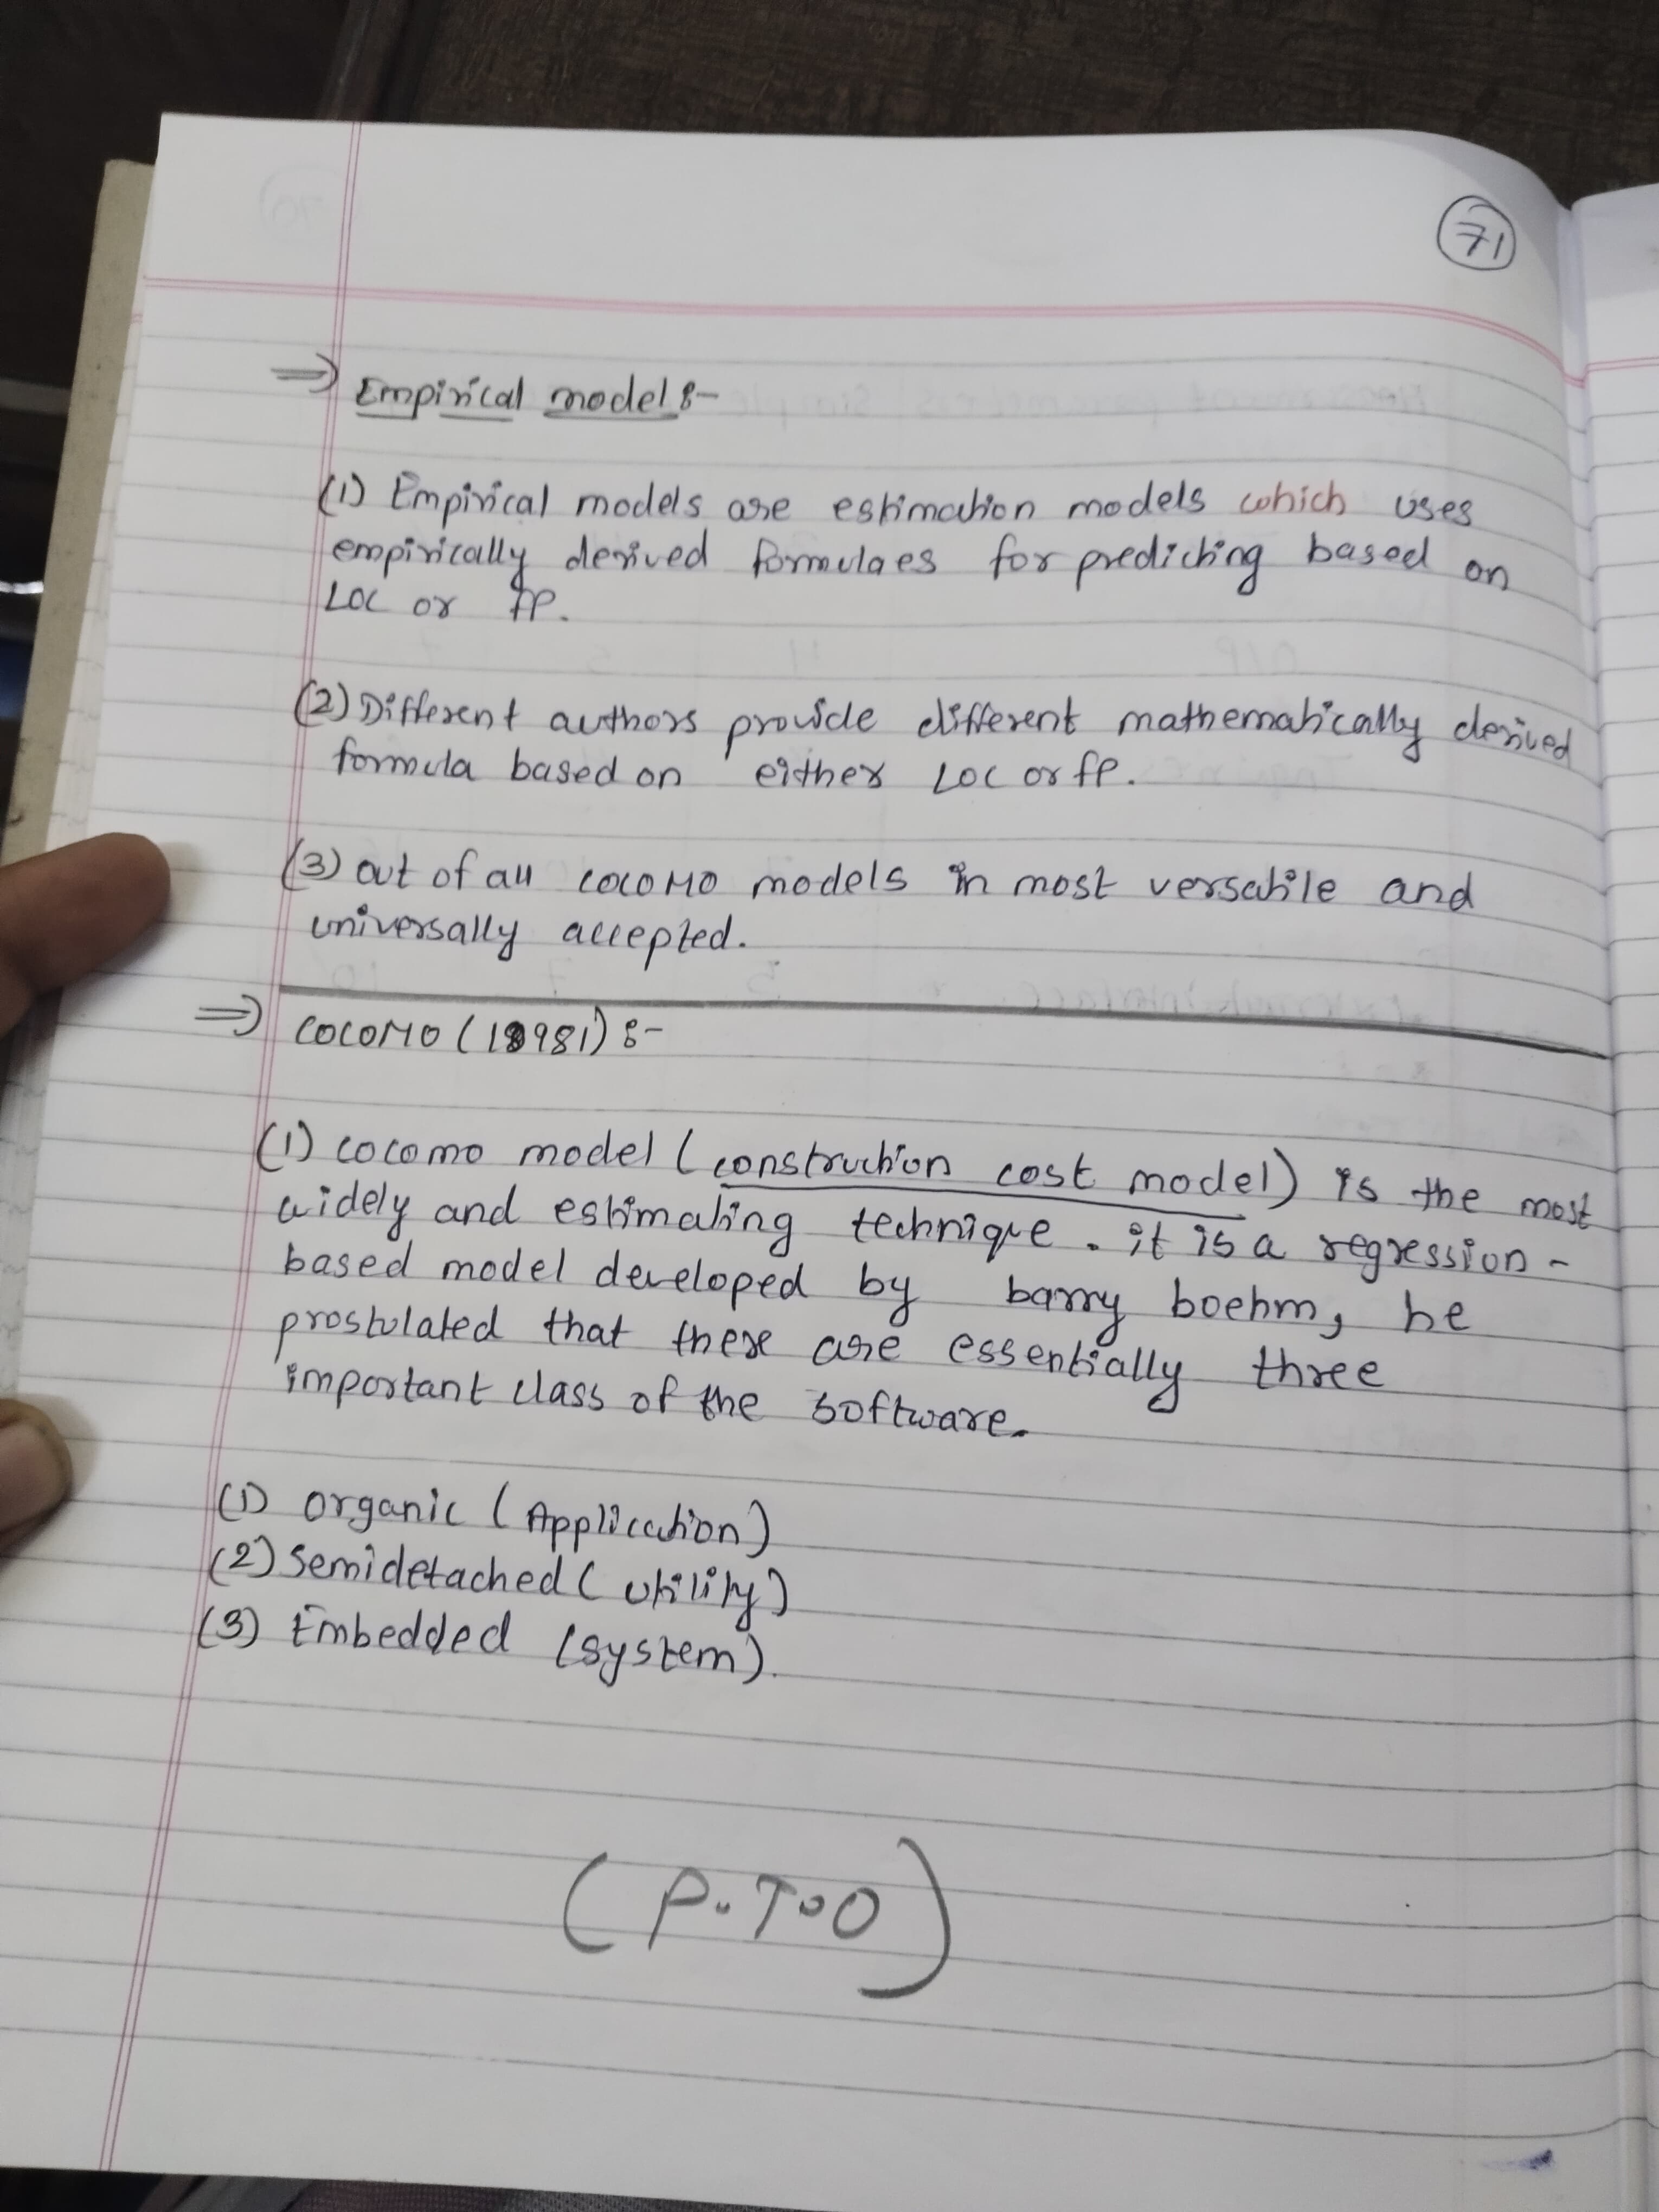 71
⇒ Empirical model :-
(1) Empirical models are estimation models which uses
empirically derived formulaes for predicting based on
LOC or FP.
(2) Different authors provide different mathematically derived
formula based on either LOC or FP.
(3) out of all COCOMO models in most versatile and
universally accepted.
⇒ COCOMO (1981) :-
(1) cocomo model (construction cost model) is the most
widely and estimating technique. it is a regression-
based model developed by barry boehm, he
prostulated that there are essentially three
important class of the software.
(1) organic (Application)
(2) Semidetached (utility)
(3) Embedded (system).
(P.T.O)